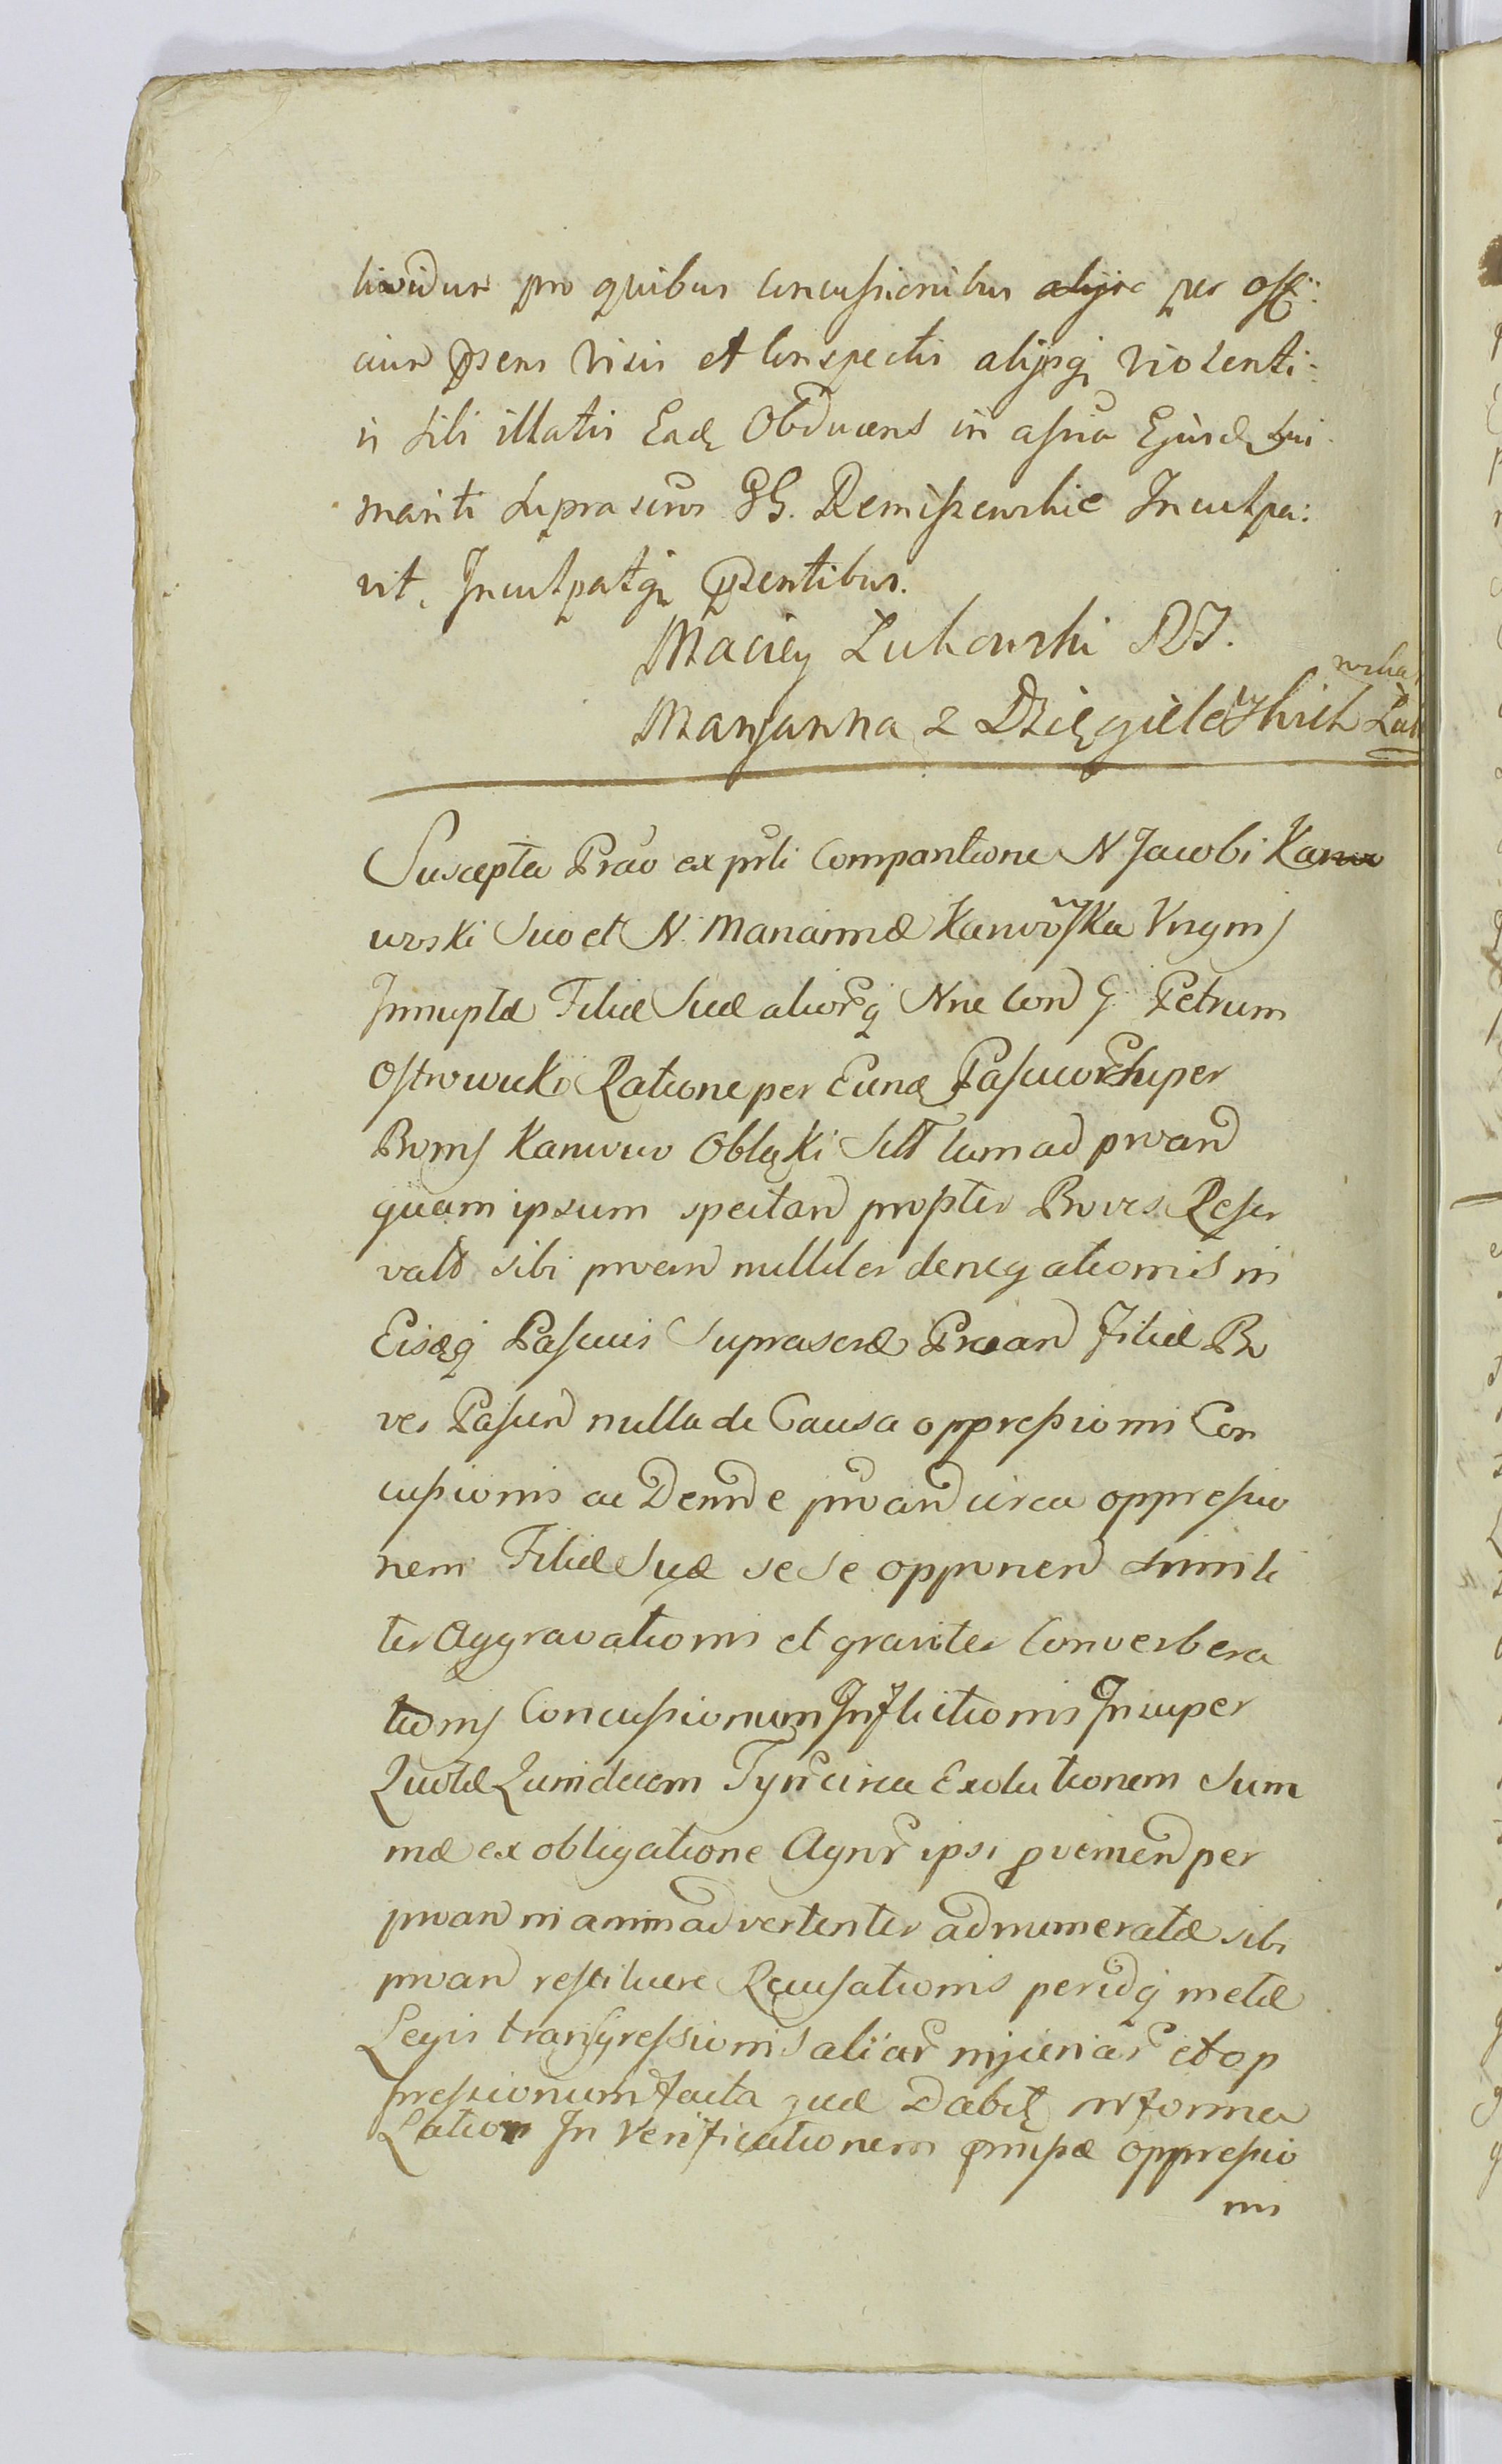 lividum pro quibus concussionibus alijsc per offi:
cium psens visis et conspectis alijsq violenti:
is sibi illatis Eadē Obducens in assña Ejusdē sui
mariti suprascros GG. Remiszewskie Inculpa:
vit, Inculpatq psentibus.
Maciey Lukowski RJ.
Maryanna z Dzięgielewskich Luk
wska
Suscepta Prāo ex prti Comparitione N Jacobi Karw
wski Suo et N. Mariannæ Karwoska Virginis
Innuptæ Filiæ Suæ alior q Nne Con G Petrum
Ostrowicki Ratione per Eund Pascuor super
Bonis Karwowo Obłąki Sitt tam ad proand
quam ipsum spectan propter Boves Reser
vatt sibi proan nulliter denegationis in
Eisdq Pascuis Suprascræ Proan Filiæ Bo
ves Pascen nulla de Causa oppressionis Con
cussionis ac Deinde proan circa oppressio
nem Filiæ Suæ se se opponen simili
ter Aggravationis et graviter Converbera
tionis Concussionum Inflictionis Insuper
Quotæ Quindecem Tynf circa Exolutionem Sum
mæ ex obligatione Agnr ipsi provenien per
proan in animadvertenter adnumeratæ sibi
proan restituere Recusationis peridq metæ
Legis transgressionis aliar injuriar et op
pressionum facta quæ Dabit in forma
Lation In Verificationem præmissæ oppressio
nis